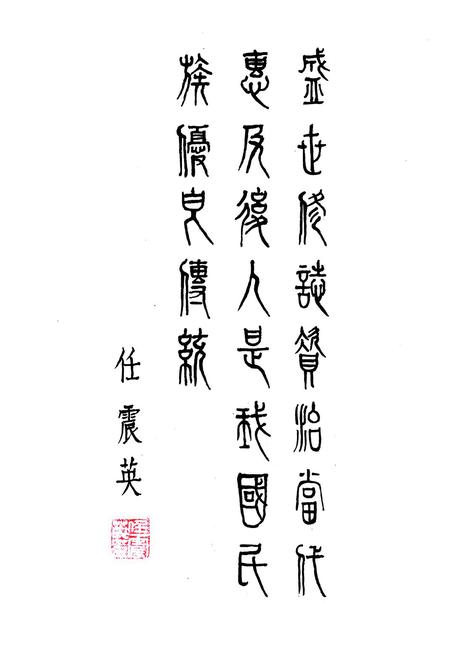 盛世修誌贊治當代
惠及後人是我國民
族優良傳統
任震英